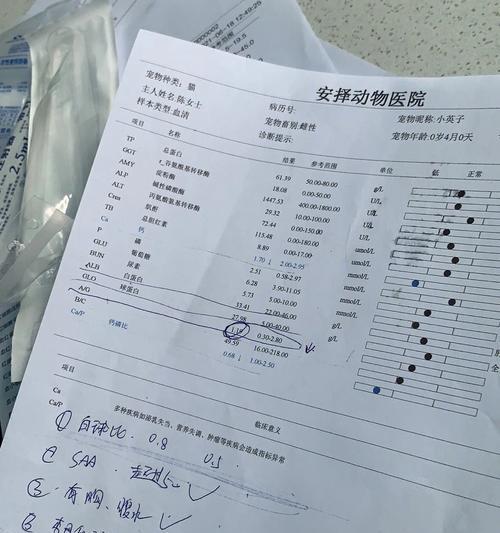 2021-06-18 12:49:25
安择动物医院
宠物种类: 猫 病历号: 宠物昵称:小英子
主人姓名:陈女士 宠物畜别:雌性 宠物年龄:0岁4月0天
样本类型:血清 诊断提示:
项目 名称 结果 参考范围 单位 低 正常
TP 总蛋白 61.39 50.00-80.00 g/L
GGT r_谷氨酰基转移酶 18.08 U/L
AMY 淀粉酶 1447.53 400.00-1800.00 U/L
ALP 碱性磷酸酶 29.32 10.00-100.00 U/L
ALT 丙氨酸氨基转移酶 17.44 U/L
Crea 肌酐 115.48 0.00-180.00 umol/L
TB 总胆红素 8.89 0.00-17.00 umol/L
Ca 钙 1.70 ↓ 2.00-2.95 mmol/L
P 磷 2.51 0.58-2.97 mmol/L
GLU 葡萄糖 6.28 3.90-11.05 mmol/L
BUN 尿素 5.73 5.00-10.00 mmol/L
ALB 白蛋白 33.41 22.00-46.00 g/L
GLO 球蛋白 27.98 5.00-40.00 g/L
A/G 1.19 0.30-2.80
B/C 49.59 16.00-218.00
Ca/P 钙磷比 0.68 ↓ 1.00-2.50
项目 临床意义
Ca 多种疾病如泌乳失当、营养失调、肿瘤等疾病会造成指标异常
Ca/P
① 白球比 0.8 0.5
② SAA 50 ✓
③ 有胸、腹水 ✓